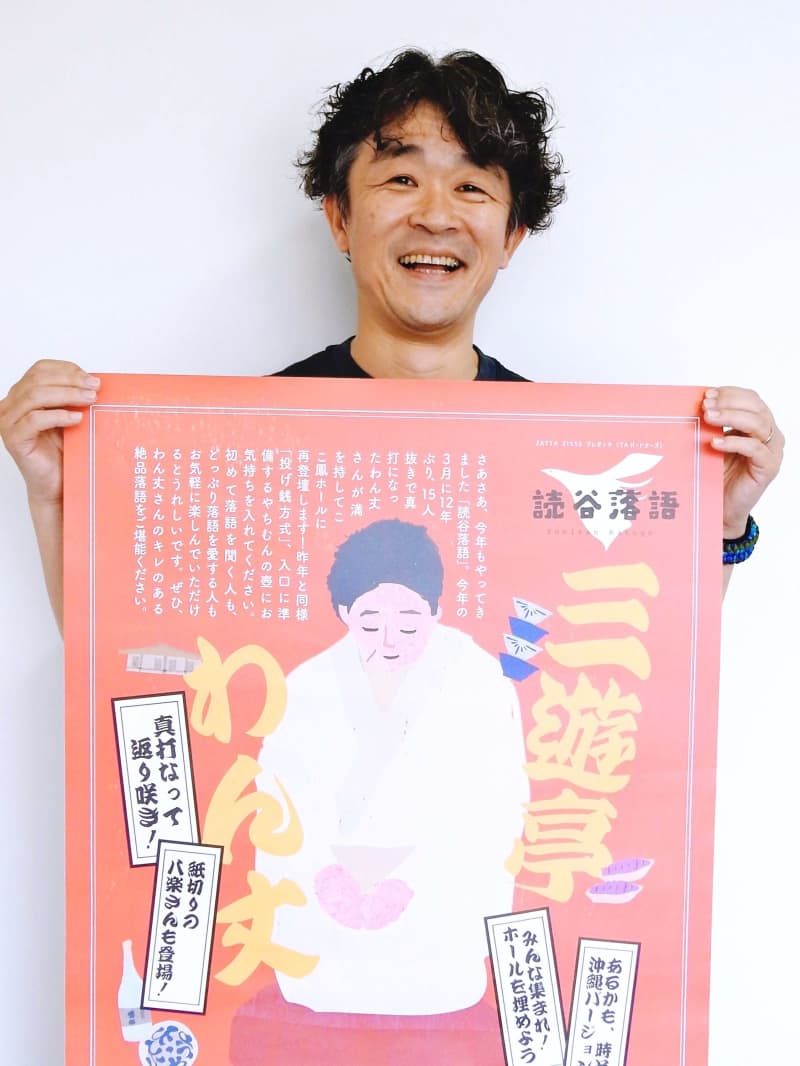 読谷落語
三遊亭
わん丈
さあさあ、今年もやってき
ました「読谷落語」。今年の
3月に12年
ぶり、15人
抜きで真
打になっ
たわん丈
さんが満
を持してこ
こ鳳ホールに
再登壇します!昨年と同様
「投げ銭方式」、入口に準
備するやちむんの壺にお
気持ちを入れてください。
初めて落語を聞く人も、
どっぷり落語を愛する人も
お気軽に楽しんでいただけ
るとうれしいです。ぜひ、
わん丈さんのキレのある
絶品落語をご堪能ください。
真打なって
返り咲き!
紙切りの
八楽さんも登場!
みんな集まれ!
ホールを埋めよう
あるかも、時
沖縄バージョン